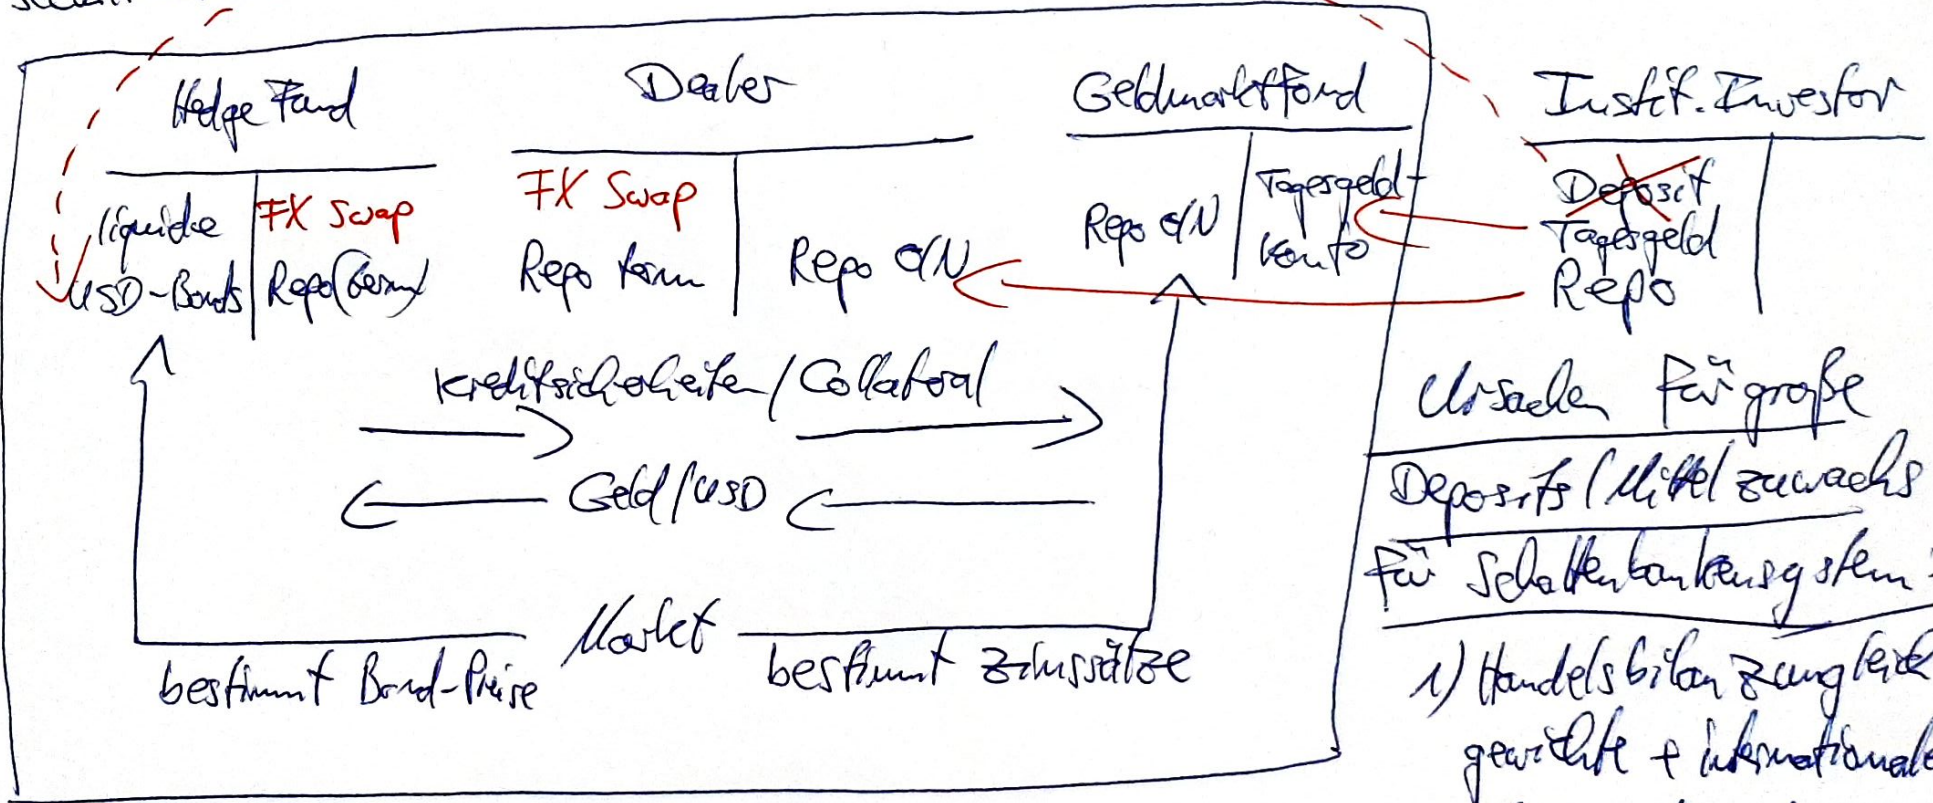 Hedge Fund
liquide
USD-Bonds
FX Swap
Repo (term)
Dealer
FX Swap
Repo term
Repo O/N
Geldmarktfond
Repo O/N
Tagesgeld-
konto
Instit. Investor
Deposit
Tagesgeld
Repo
Kreditsicherheiten / Collateral
Geld / USD
Markt
bestimmt Bond-Preise
bestimmt Zinssätze
Ursachen für große
Deposits / Mittelzuwachs
für Schattenbankensystem:
1) Handelsbilanzungleich
gewichte + internationale